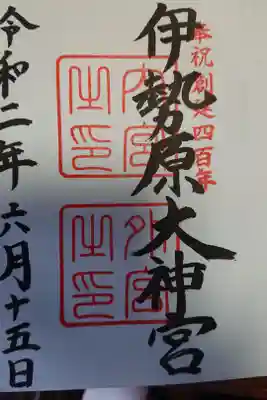 奉祝創建四百年
伊勢原大神宮
内宮之印
外宮之印
令和二年六月十五日